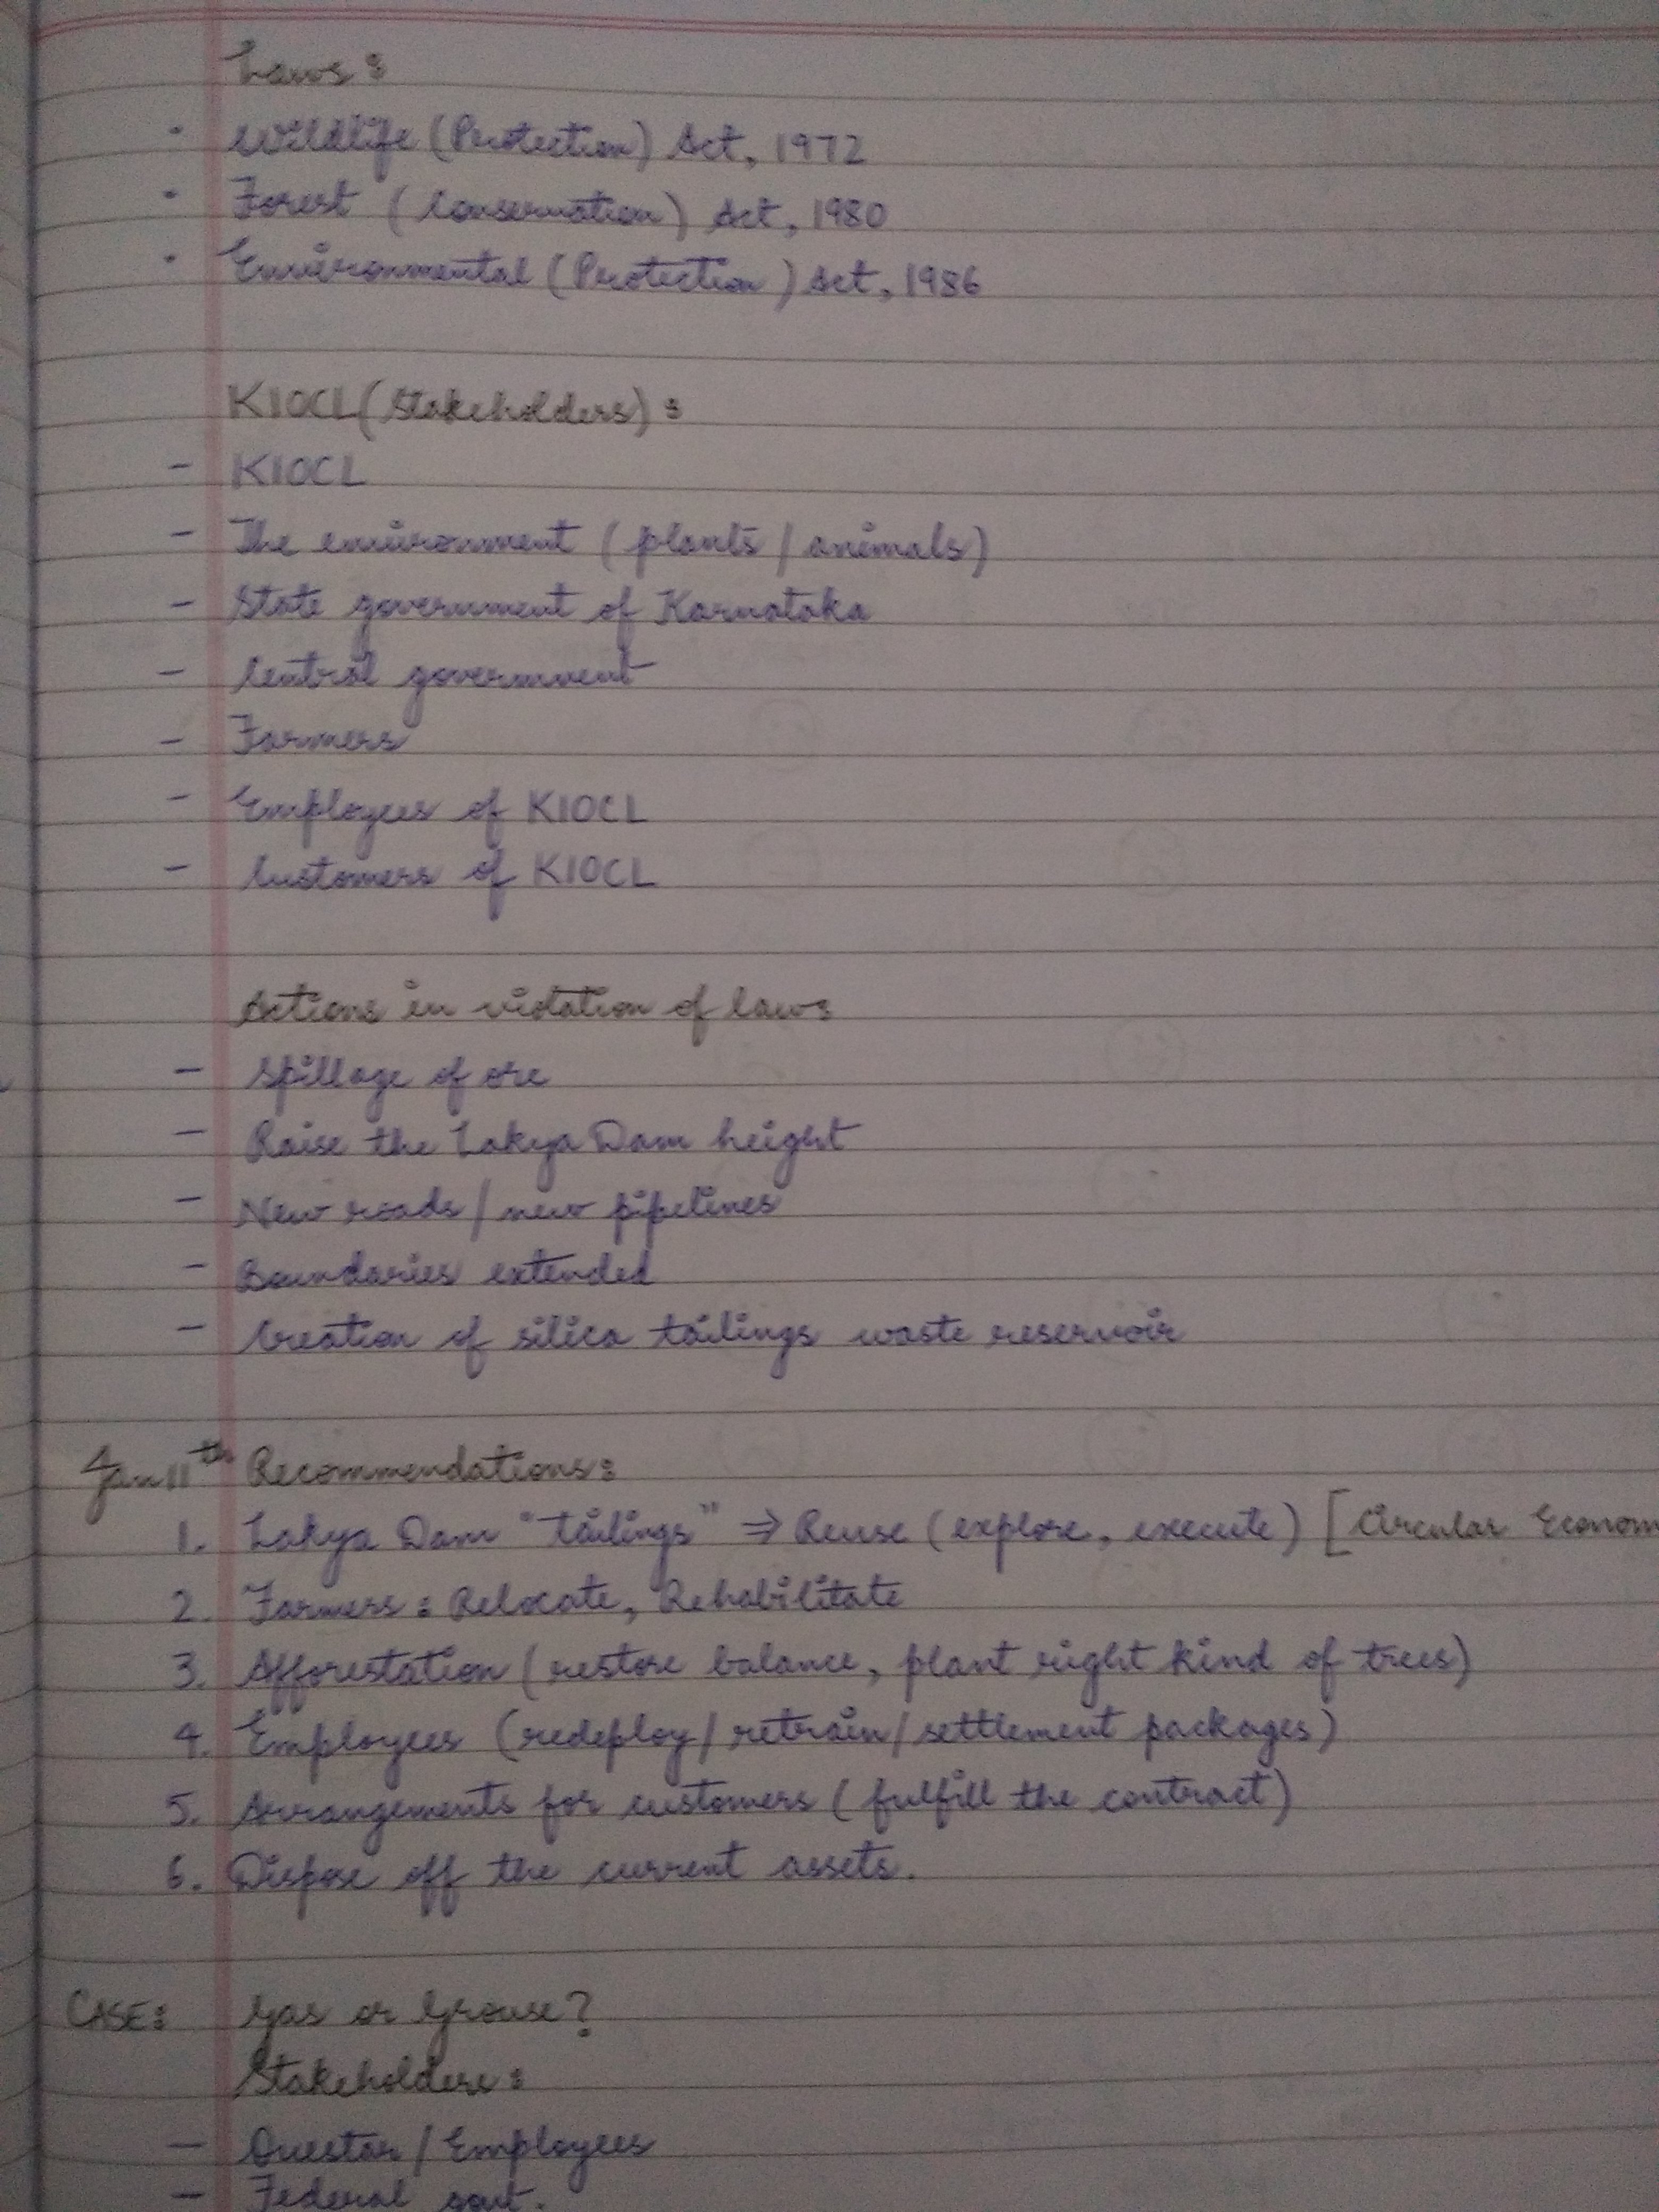 Laws:
• Wildlife (Protection) Act, 1972
• Forest (Conservation) Act, 1980
• Environmental (Protection) Act, 1986
KIOCL (Stakeholders):
- KIOCL
- The environment (plants / animals)
- State government of Karnataka
- Central government
- Farmers
- Employees of KIOCL
- Customers of KIOCL
Actions in violation of law:
- Spillage of ore
- Raise the Lakya Dam height
- New roads / new pipelines
- Boundaries extended
- Creation of silica tailings waste reservoir
Jan 11th Recommendations:
1. Lakya Dam "tailings" ⇒ Reuse (explore, execute) [Circular Econom
2. Farmers: Relocate, Rehabilitate
3. Afforestation (restore balance, plant right kind of trees)
4. Employees (redeploy / retrain / settlement packages)
5. Arrangements for customers (fulfill the contract)
6. Dispose off the current assets.
CASE: Gas or Grouse?
Stakeholders:
- Questar / Employees
- Federal govt.